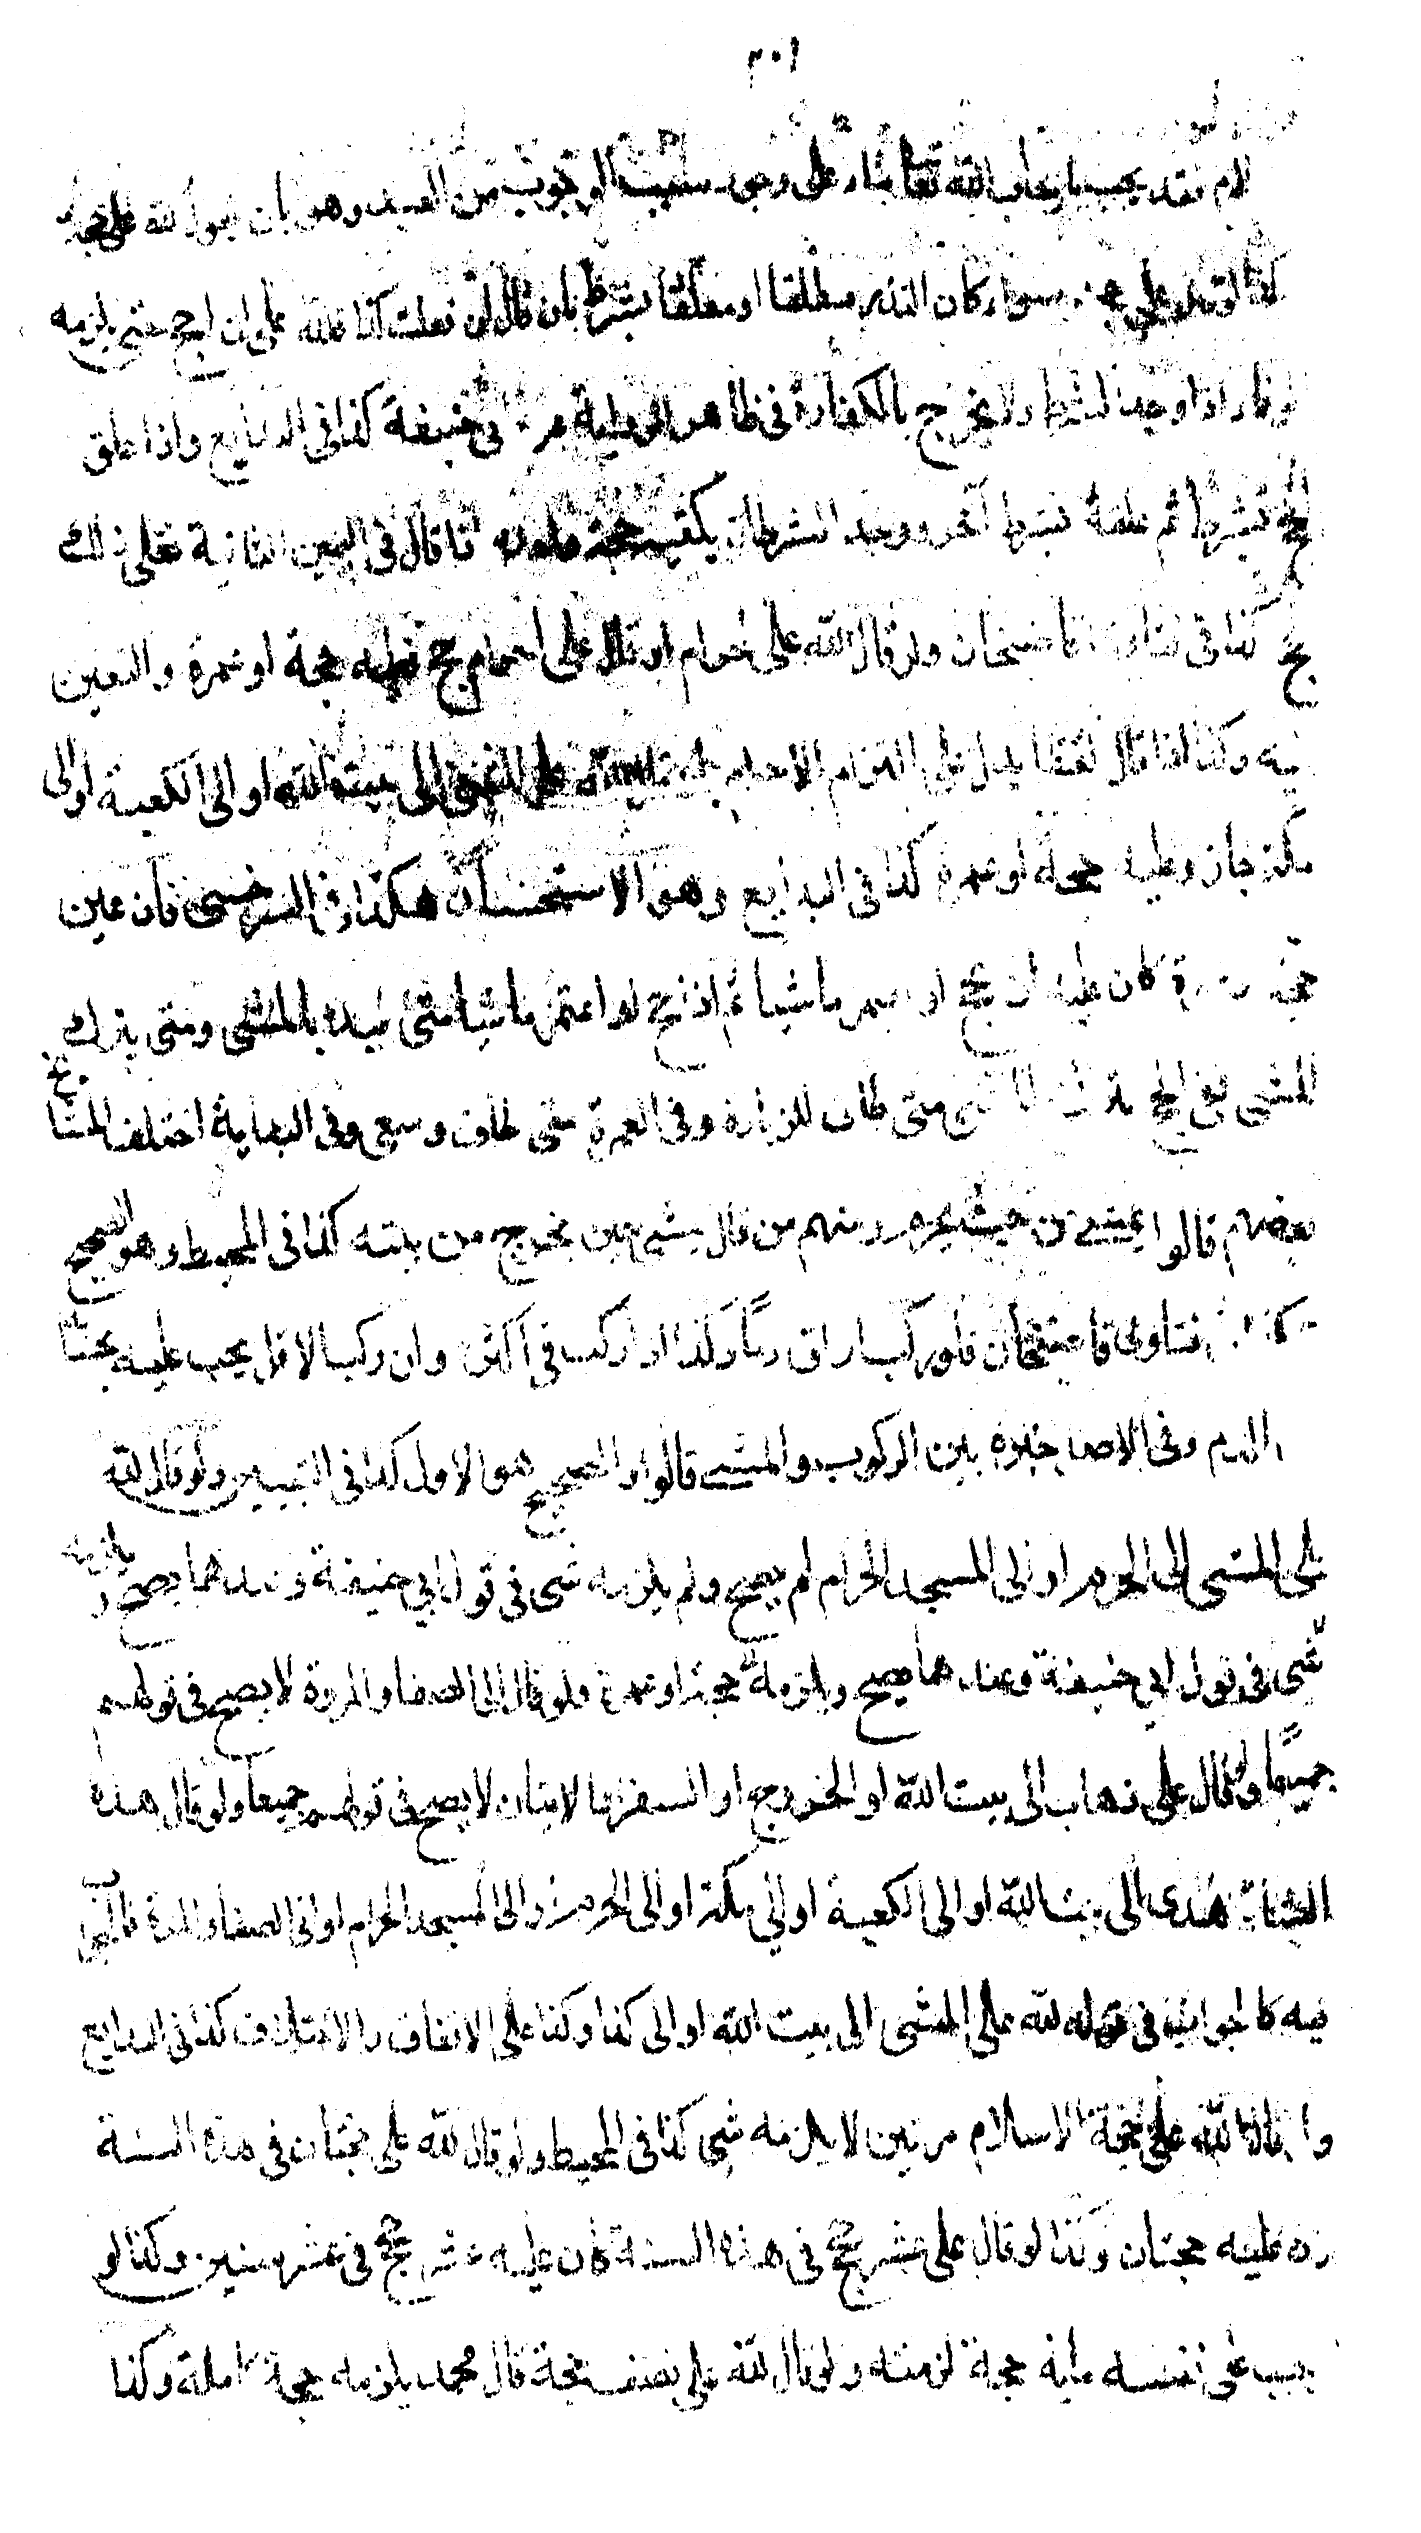 الام فقد يجب بايجاب الله تعالى بناء على وجود سبب الوجوب من العبد وهو بان يقول لله علي حجة
كذا لو قال علي حجة سواء كان النذر مطلقا او معلقا بشرط بان قال ان فعلت كذا فلله علي ان احج حتى يلزمه
الوفاء اذا وجد الشرط ولا يخرج بالكفارة في ظاهر الرواية عن ابي حنيفة كذا في البدايع واذا علق
الحج بشرط ثم علقه بشرط آخر ووجد الشرطان يكفيه حجة واحدة اذا قال في اليمين الثانية فعلي ذلك
الحج كذا في فتاوى قاضيخان ولو قال لله علي احرام او قال علي احرام حج فعليه حجة او عمرة والتعيين
اليه وكذا اذا قال لفظا يدل على التزام الاحرام بان قال لله علي المشي الى بيت الله او الى الكعبة او الى
مكة جاز وعليه حجة او عمرة كذا في البدايع وهو الاستحسان هكذا في السرخسي فان عين
حجة او عمرة كان عليه ان يحج او يعتمر ماشيا ثم اذا حج او اعتمر ماشيا متى يبدء بالمشي ومتى يترك
المشي ففي الحج يترك المشي متى طاف للزيارة وفي العمرة متى طاف وسعى وفي البداية اختلف المشايخ
بعضهم قالوا يمشي من حيث يحرم ومنهم من قال يمشي حين يخرج من بيته كذا في المحيط وهو الصحيح
كذا في فتاوى قاضيخان فلو ركب اراق دما وكذا اذا ركب في اكثره وان ركب الاقل يجب عليه بحسابه
الدم وفي الاصل خيره بين الركوب والمشي قالوا والصحيح هو الاول كذا في التبيين ولو قال لله
علي المشي الى الحرم او الى المسجد الحرام لم يصح ولم يلزمه شي في قول ابي حنيفة وعندهما يصح ويلزمه
شي في قول ابي حنيفة وعندهما يصح ويلزمه حجة او عمرة ولو قال الى الصفا والمروة لا يصح في قولهم
جميعا ولو قال علي ذهاب الى بيت الله او الخروج او السفر او الاتيان لا يصح في قولهم جميعا ولو قال هذه
الشاة هدي الى بيت الله او الى الكعبة او الى مكة او الى الحرم او الى المسجد الحرام او الى الصفا والمروة فالجواب
فيه كالجواب في قوله لله علي المشي الى بيت الله او الى كذا وكذا على الاتفاق والاختلاف كذا في البدايع
واذا قال لله علي حجة الاسلام مرتين لا يلزمه شي كذا في المحيط ولو قال لله علي حجتان في هذه السنة
كان عليه حجتان وكذا لو قال علي عشر حجج في هذه السنة كان عليه عشر حجج في عشر سنين وكذا لو
اوجب على نفسه مايه حجة لزمته ولو قال لله علي نصف حجة قال محمد يلزمه حجة كاملة وكذا